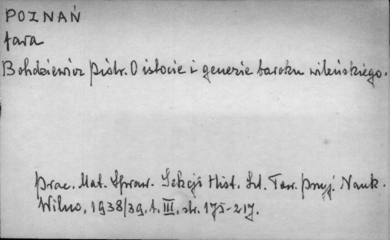 POZNAŃ
fara
Bohdziewicz Piotr. O istocie i genezie baroku wileńskiego.
Prac. Mat. Spraw. Sekcji Hist. Szt. Tow. Przyj. Nauk.
Wilno, 1938/39, t. III, str. 175-217.